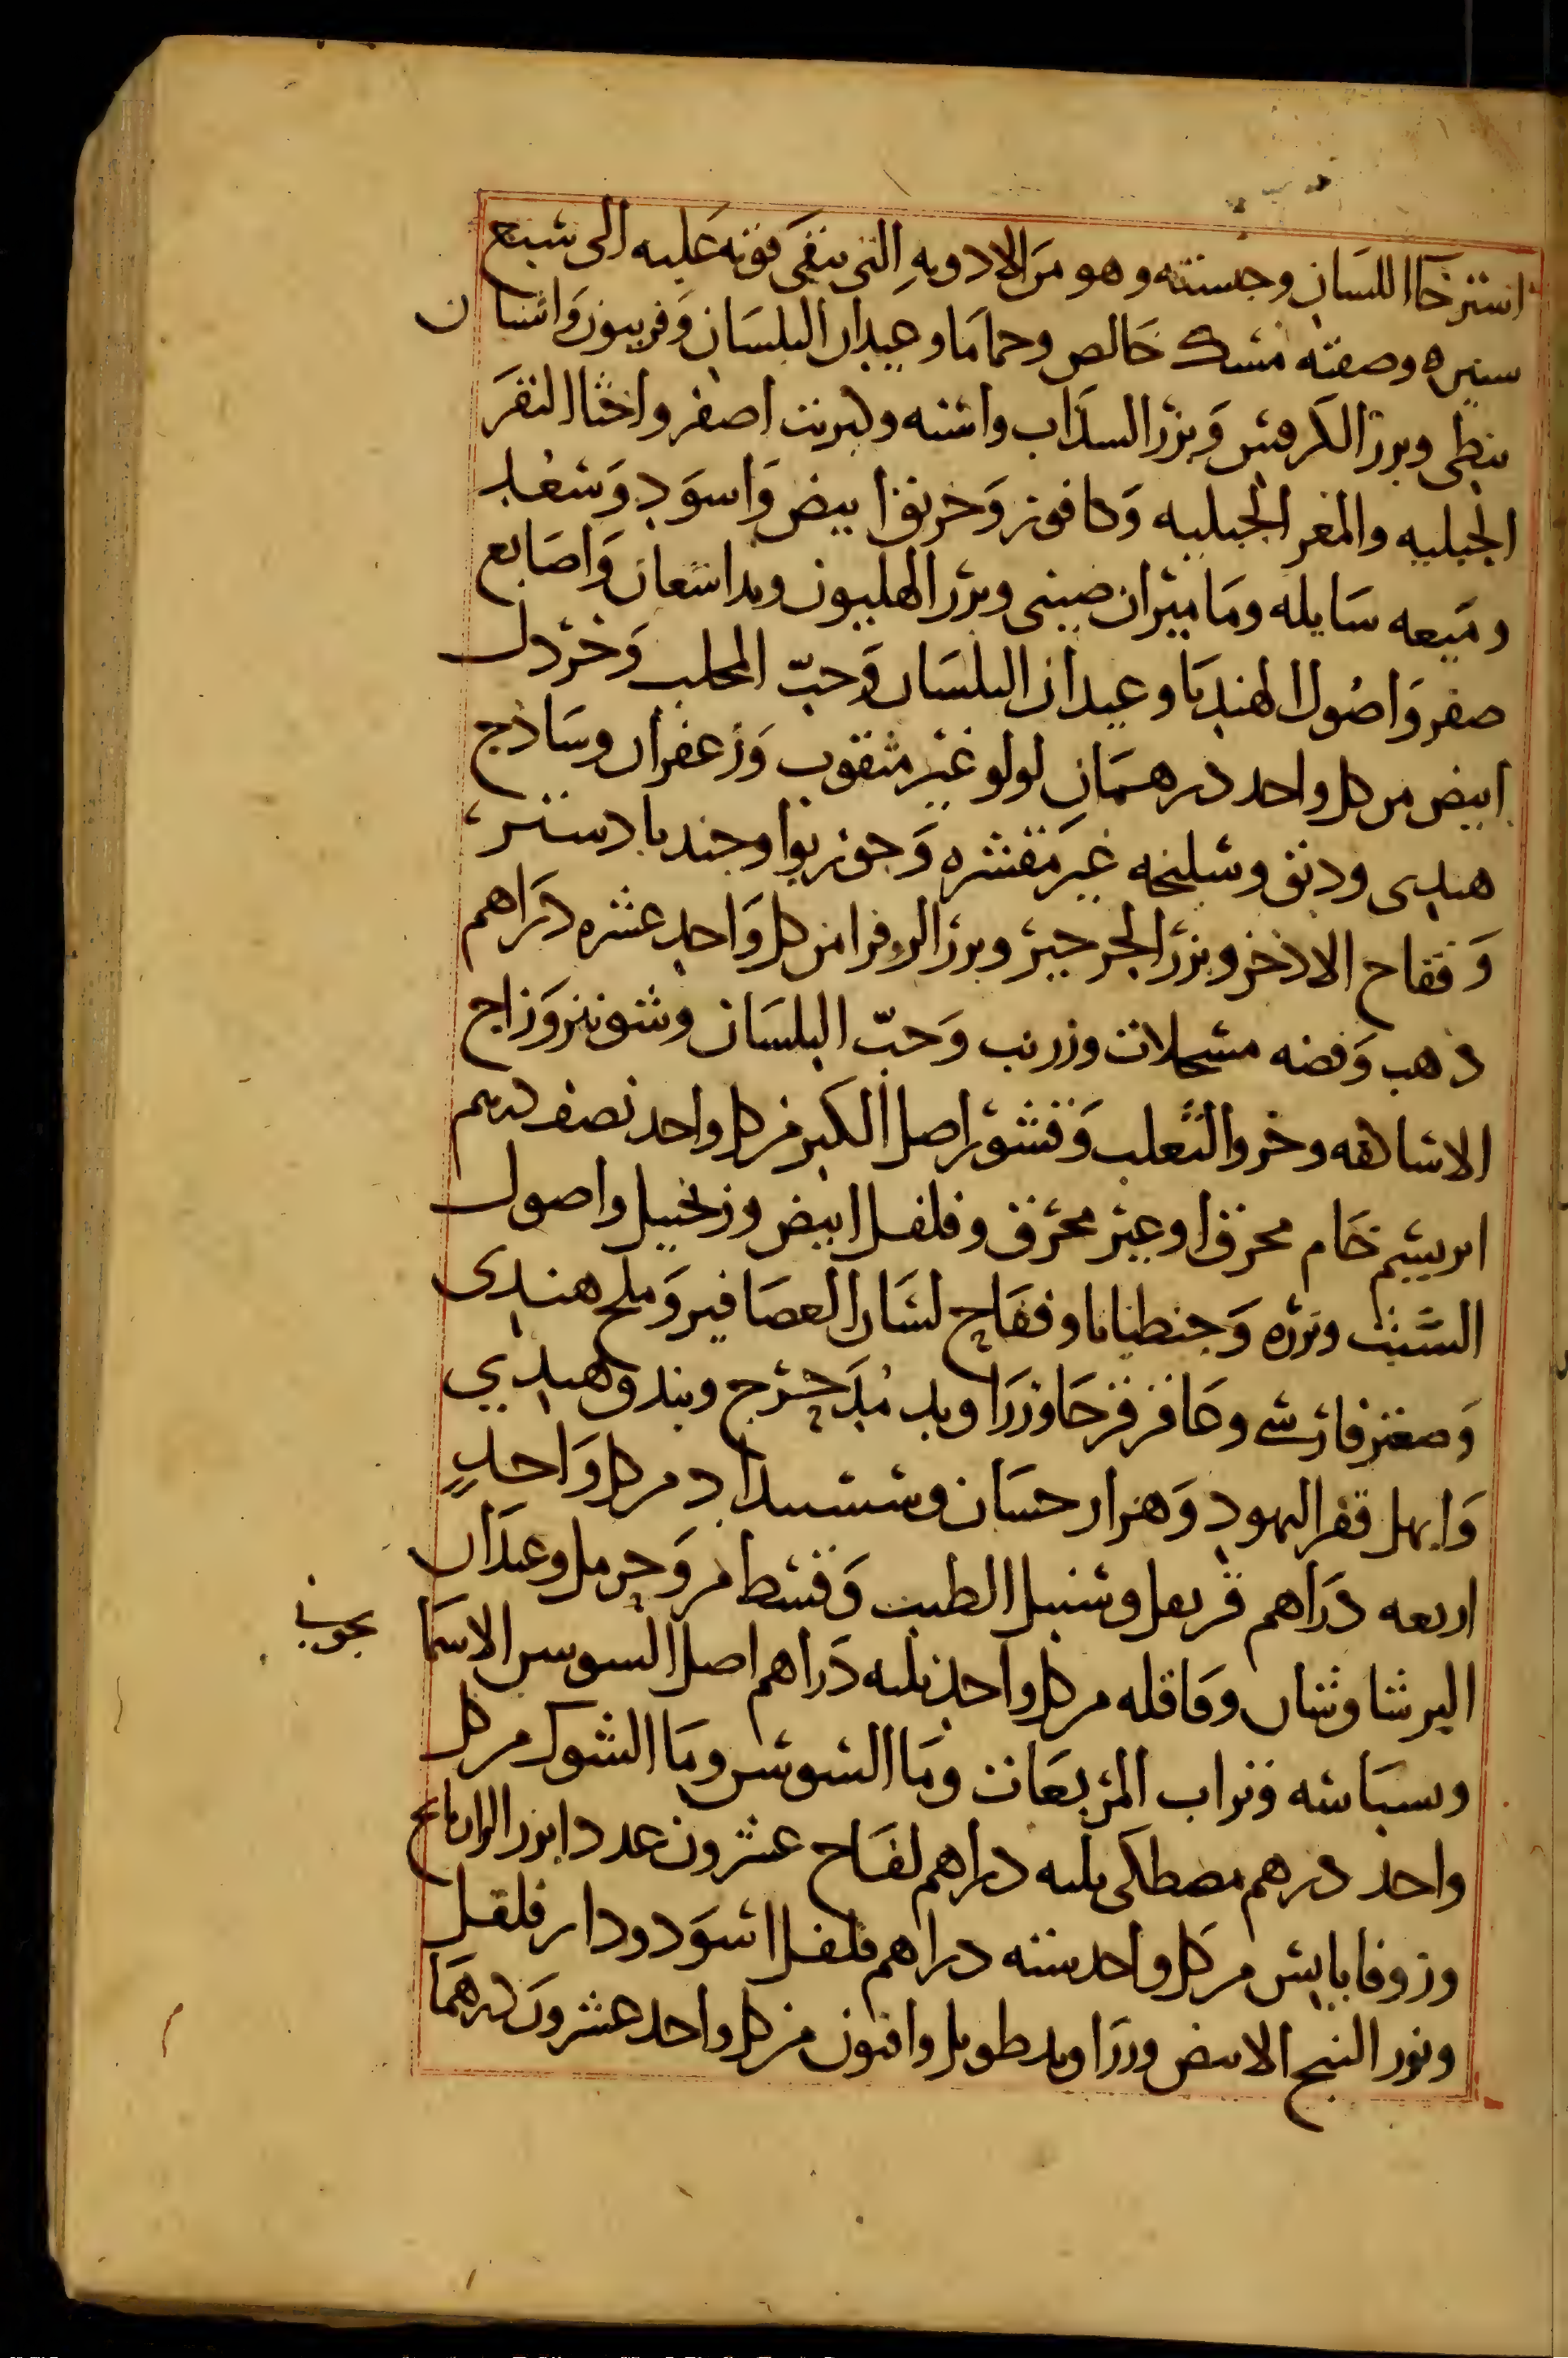 استرخاا اللسان وجسنته وهو من الادويهِ التى تبقى قوته عليه الى سبع
سنيره وصفته مشك خالص وحماما وعيدان البلسان وفربيون واشنان
نبطى وبزر الكرفس وبزر السداب واشنه وكبريت اصفر واخثا البقر
الجبليه والمغر الجبليه وكافور وخربق ابيض واسود وسعد
وميعه سايله وماميران صينى وبزر الهليون وبداسعان واصابع
صفر واصول الهندبا وعيدان البلسان وحبّ المحلب وخردل
ابيض من كل واحد درهمان لولو غير مثقوب وزعفران وساذج
هندى ودبق وسليخه غير مقشره وجوزبوا وجندبادستر
وفقاح الاذخر وبزر الجرجير وبزر الروفرا من كل واحد عشره دراهم
ذهب وفضه مسحلات وزرنب وحبّ البلسان وشونيز وزاج
الاساكفه وخرو الثعلب وقشور اصل الكبر من كل واحد نصف درهم
ابريسم خام محرق او عير محرق وفلفل ابيض وزنجبيل واصول
السبت وبزره وجنطيانا وفقاح لسان العصافير وملح هندى
وصعتر فارسى وعاقرقرحا وزراوند مُدحرج وبندق هندي
وابهل قفر اليهود وهزارحسان وششبنداد من كل واحدٍ
اربعه دراهم قرنفل وسنبل الطيب وقسط مر وحرمل وعيدان
البرشاوشان وقاقله من كل واحد ثلثه دراهم اصل السوسن الاسما
نجونى
وسبباسه وتراب المربعات وما السوس وما الشوك من كل
واحد درهم مصطكى ثلثه دراهم لفاح عشرون عددا بزر الرازيانج
وزوفا يابس من كل واحد سته دراهم فلفل اسود ودار فلفل
وبزر البنج الابيض وزراوند طويل وافيون من كل واحد عشرون درهما